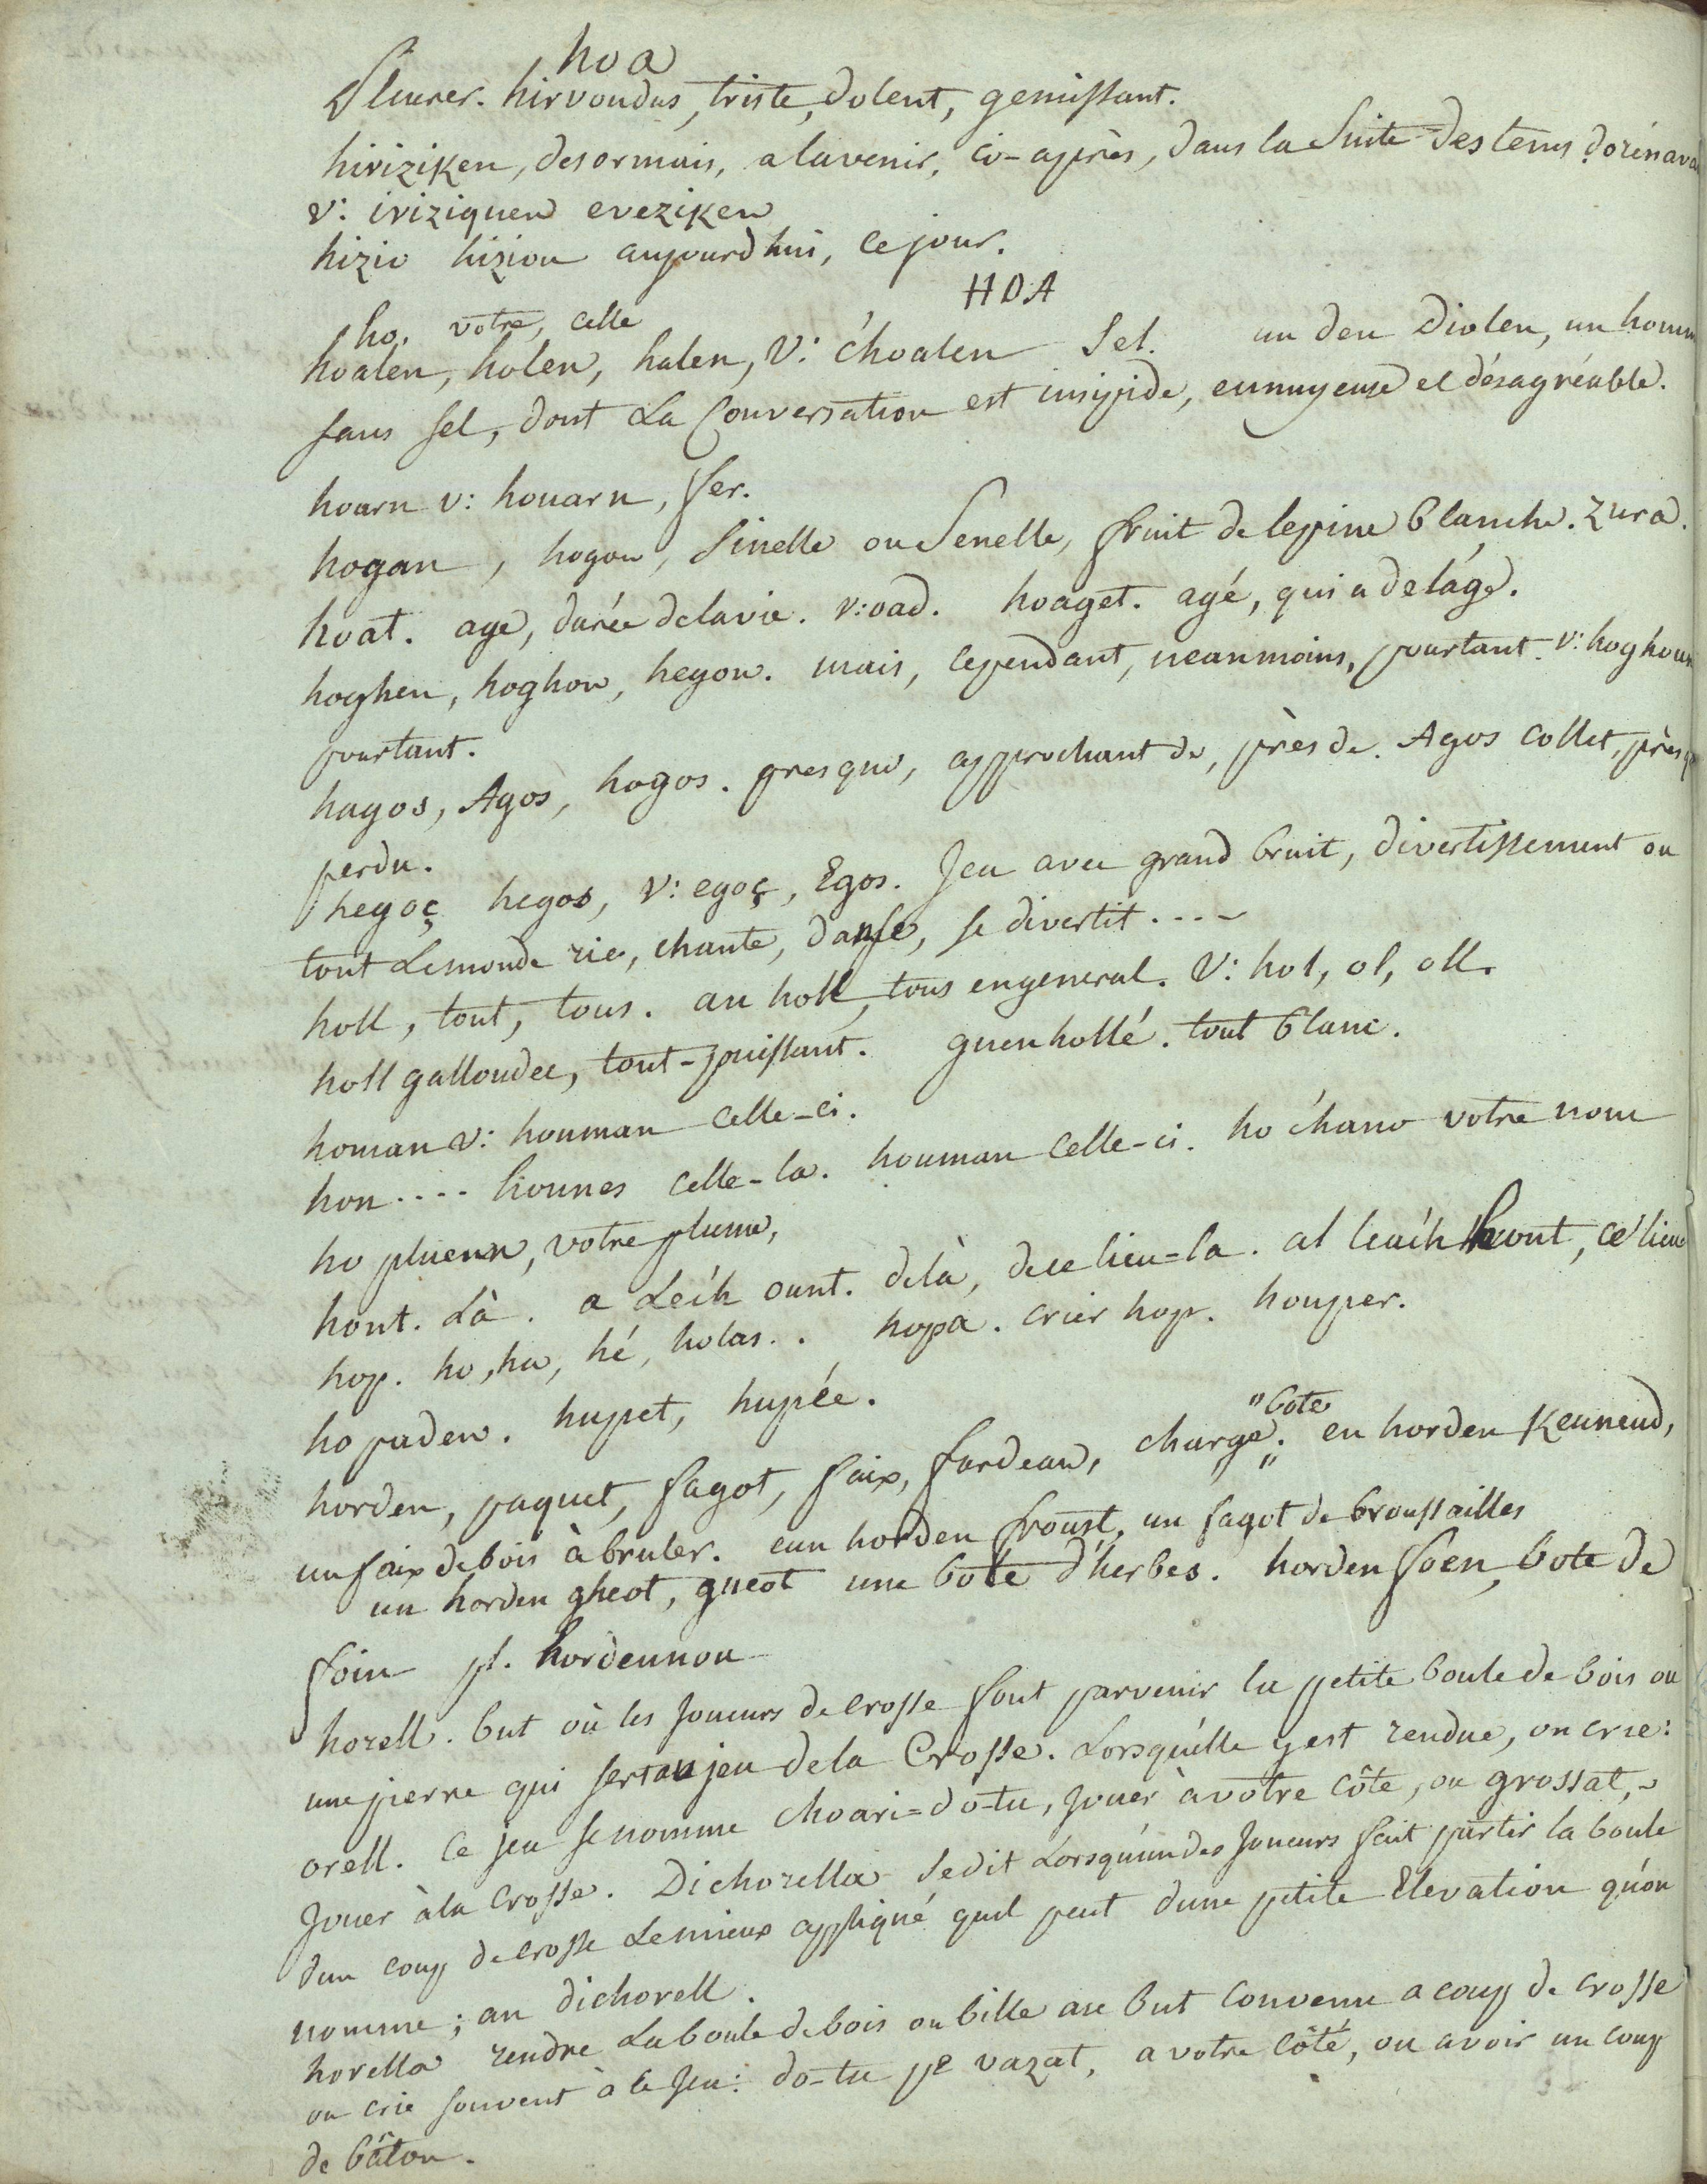 hoa
Pleurer. hirvoudus, triste, dolent, gemissant.
hiviziken, desormais, alavenir, ci-après, dans la Suite des tems dorénava
v: iviziquen eveziken
hizio hiziou aujourdhui, ce jour.
HOA
ho. votre, celle
hoalen, holen, halen, V: c'hoalen Sel. un den diolen, un homm
sans sel, dont La Conversation est insipide, ennuyeuse et désagréable.
hoarn v: houarn, fer.
hogan, hogon, Sinelle ou Senelle, fruit de lepine blanche. zura.
hoat. age, durée delavie. v: oad. hoaget. agé, qui a delâge.
hoghen, hoghon, hegon. mais, cependant, neanmoins, pourtant. v: hoghoun
pourtant.
hagos, Agos, hogos. presque, approchant de, près de. Agos collet, presq
perdu.
hegoç hegos, v: egoç, Egos. Jeu avec grand bruit, divertissement ou
tout Lemonde rie, chante, danse, se divertit....
holl, tout, tous. an holl, tous engeneral. V: hol, ol, oll.
holl galloudec, tout-puissant. guenhollé. tout blanc.
homan v: houman celle-ci.
hon.... hounes celle-la. houman celle-ci. ho c'hano votre nom
ho pluenn, votre plume,
hont. Là. a Lec'h ount. delà, dece lieu-la. al leac'h hont, ce lieu
hop. ho, ha, hé, holas.. hopa. crier hop. houper.
ho paden. hupet, hupée.
horden, paquet, fagot, faix, fardeau, charge. "bote" en horden Keuneud,
un faix de bois à bruler. eun horden froust, un fagot de broussailles
un horden gheot, gueot une bote d'herbes. horden foen, bote de
foin pl. hordennou
horell. but où les Joueurs de crosse font parvenir la petite boule de bois ou
une pierre qui sert au jeu de la Crosse. Lorsqu'elle y est rendue, on crie:
orell. Ce jeu se nomme choari=do-tu, Jouer à votre côte, ou grossat,
Jouer àla crosse. Dichorella Se dit Lorsqu'un des Joueurs fait partir la boule
dun coup de crosse Lemieux appliqué quil peut dune petite Elevation qu'on
nomme; an dichorell.
horella rendre La boule de bois ou bille au but convenu a coup de crosse
on crie souvent à ce Jeu: do-tu pe vazat, a votre côté, ou avoir un coup
de bâton.